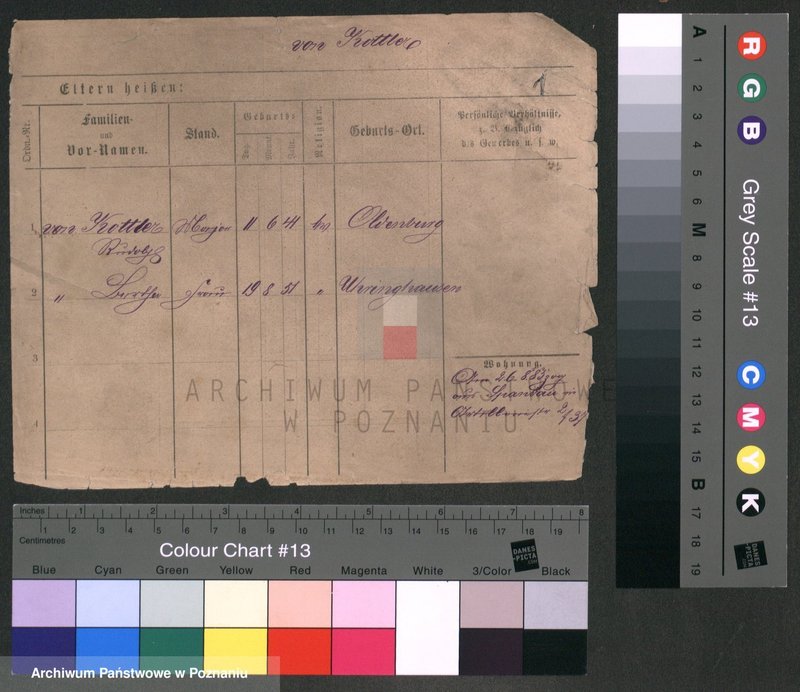 von Kottler
1
Eltern heißen:
Ordn.-Nr.
Familien-
und
Vor-Namen.
Stand.
Geburts-
Tag.
Monat.
Jahr.
Religion.
Geburts-Ort.
Persönliche Verhältnisse,
z. B. bezüglich
des Gewerbes u. s. w.
1 von Kottler Major 11 6 41 ev Oldenburg
Rudolf
2 " Bertha Frau 19 8 51 "
3
4
Wohnung.
Den 26.8.83 zog
aus Spandau
ARCHIWUM PAŃSTWOWE
W POZNANIU
Inches 1 2 3 4 5 6 7 8
Centimetres 1 2 3 4 5 6 7 8 9 10 11 12 13 14 15 16 17 18 19
Colour Chart #13
DANES-PICTA.COM
Blue Cyan Green Yellow Red Magenta White 3/Color Black
Archiwum Państwowe w Poznaniu
R G B
Grey Scale #13
C M Y K
A 1 2 3 4 5 6 M 8 9 10 11 12 13 14 15 B 17 18 19
DANES-PICTA.COM